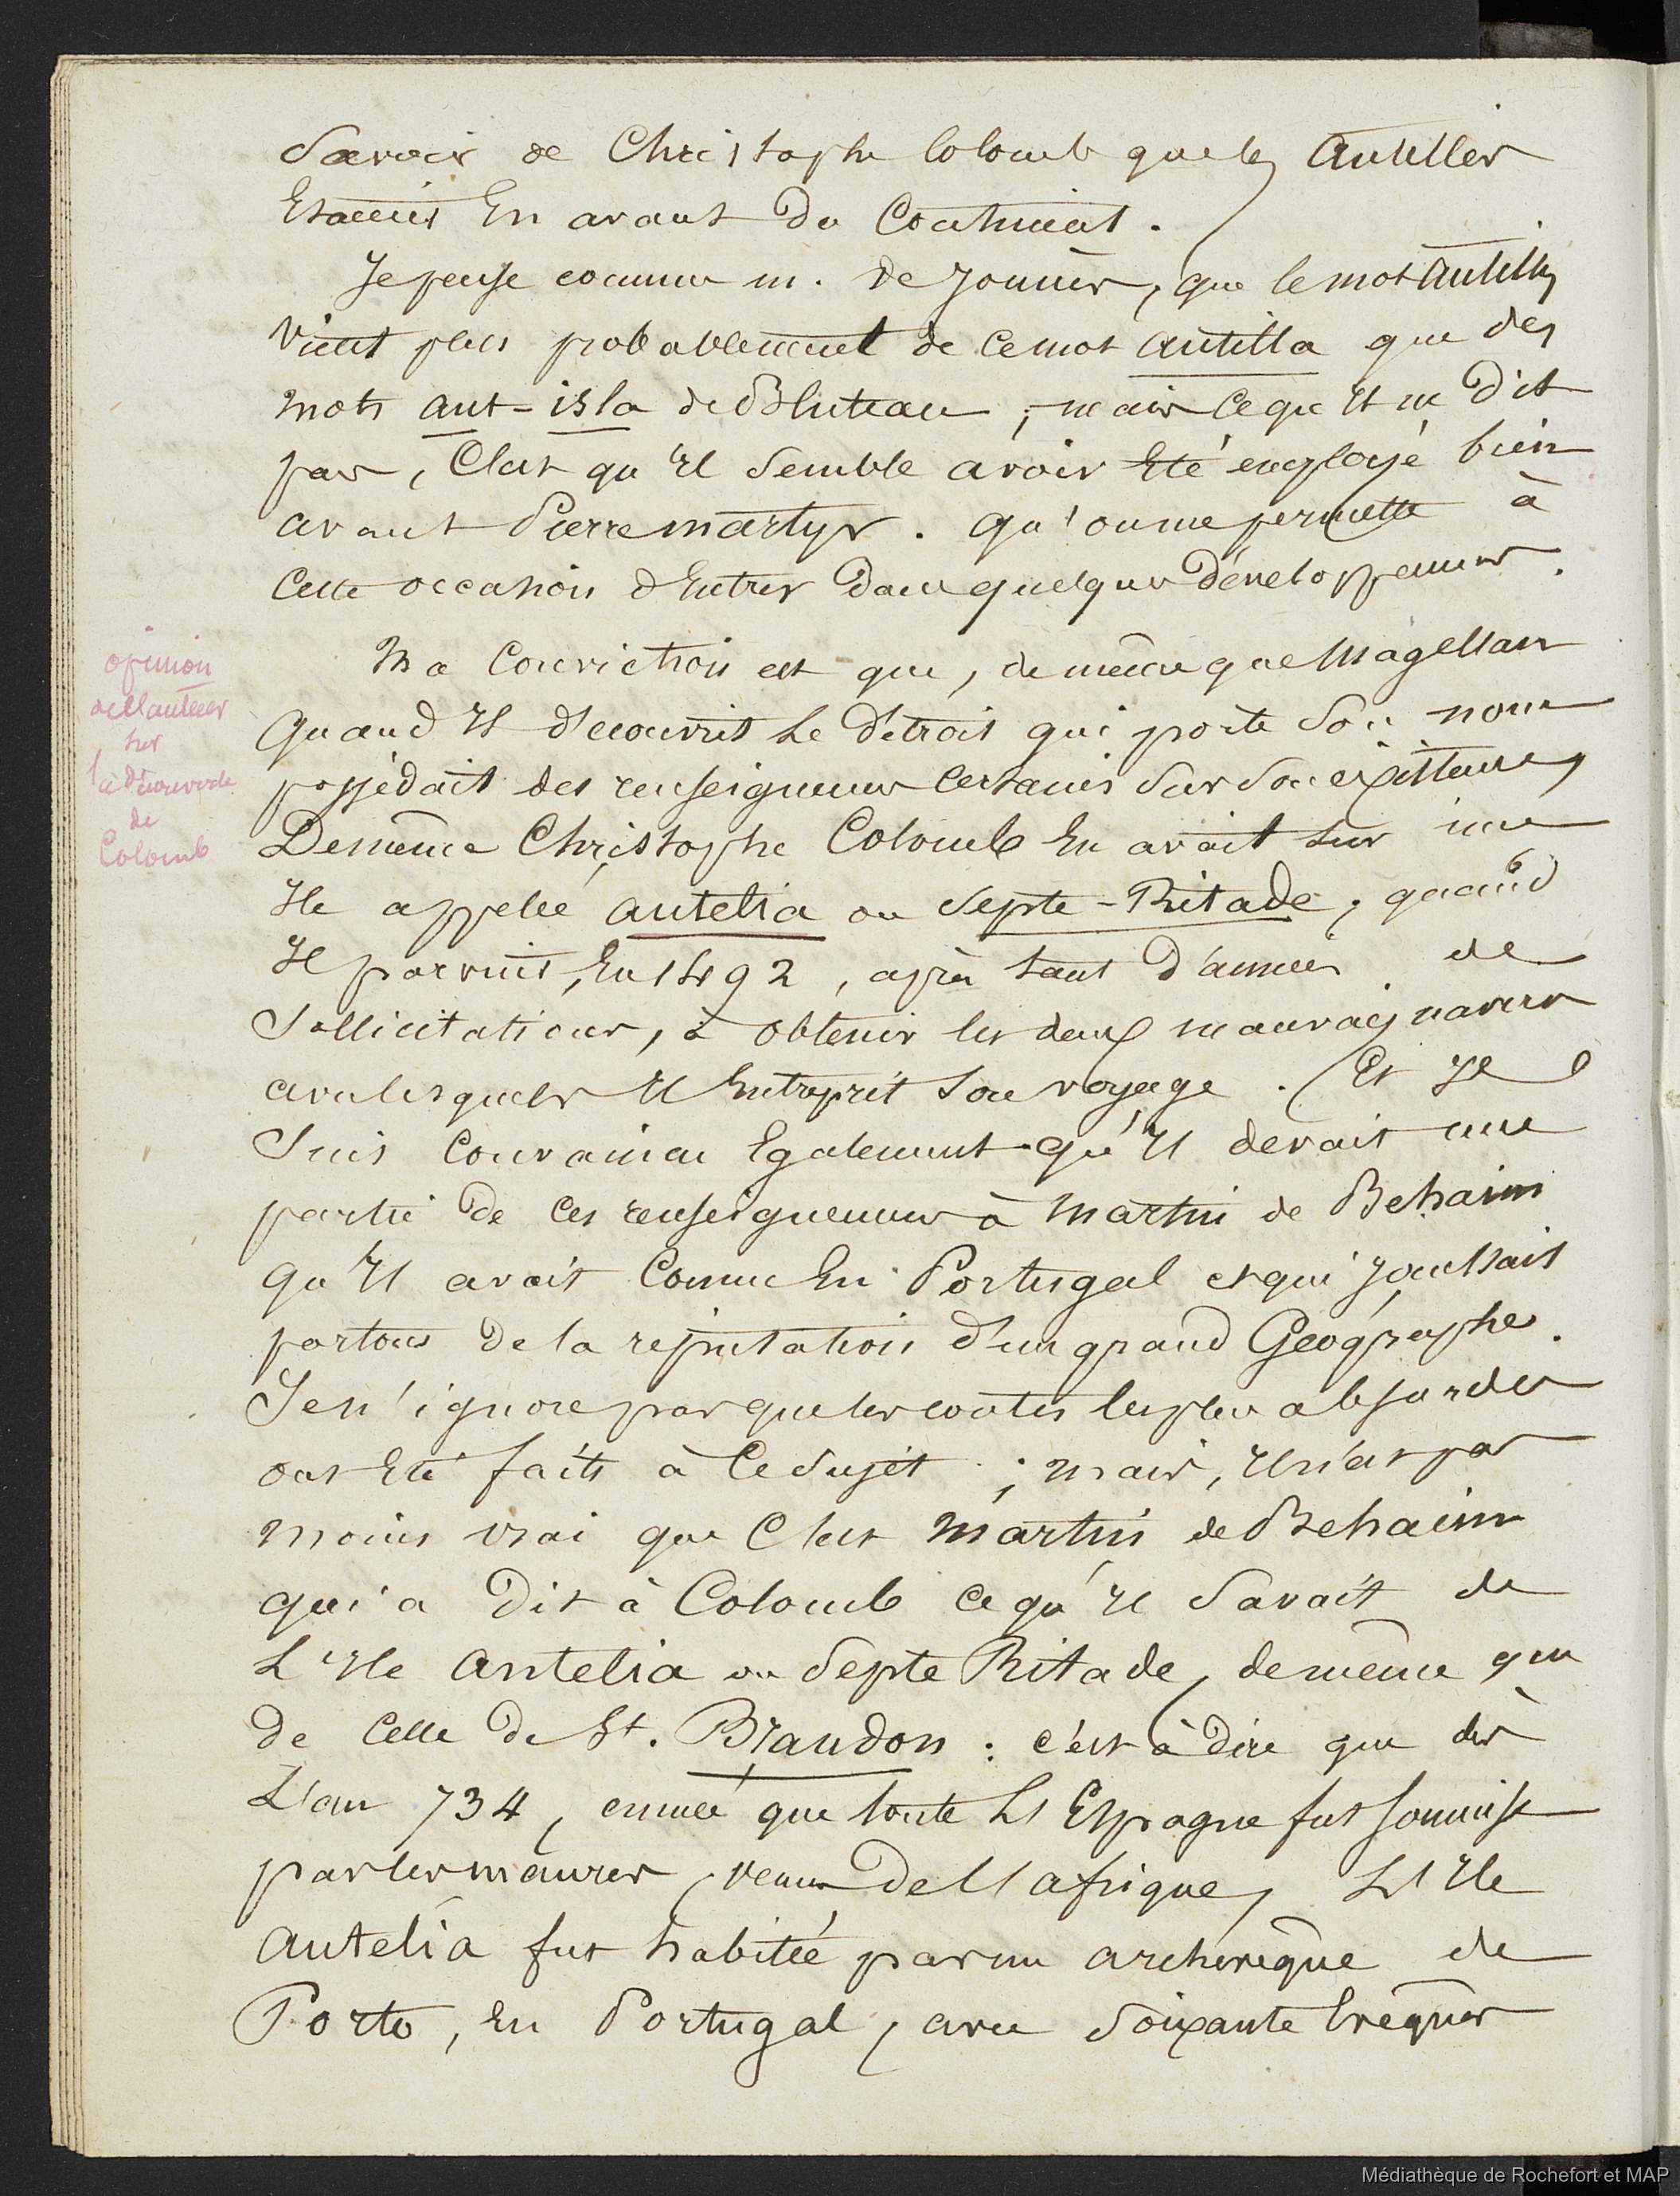 Savoir de Christophe Colomb que les Antilles
Etaient En avant du Continent.
Je pense comme m. de Jonnès, que le mot Antilles
vient plus probablement de ce mot antilla que des
mots ant-isla de Bluteau ; mais ce qu'Il ne dit
pas, C'est qu'Il semble avoir Eté employé bien
avant Pierre martyr. qu'on me permette à
cette occasion d'Entrer dans quelques développemens.
Ma Conviction est que, de même que Magellan
quand Il découvrit Le détroit qui porte Son nom
possédait des renseignemens Certains Sur Son existence,
De même Christophe Colomb En avait Sur une
Ile appelée antelia ou Septe-Ritade, quand
Il parvint, En 1492, après tant d'années de
Sollicitations, à obtenir les deux mauvais navires
avec lesquels Il Entreprit Son voyage. Et Je
Suis Convaincu Egalement qu'Il devait une
partie de ces renseignemens à Martin de Behaim
qu'Il avait Connu En Portugal et qui Jouissait
partout de la réputation d'un grand Géographe.
Je n'ignore pas que les contes les plus absurdes
ont Eté faits à Ce Sujet ; mais, Il n'est pas
moins vrai que C'est Martin de Behaim
qui a Dit à Colomb ce qu'Il Savait de
L'Ile Antelia ou Septe Ritade, de même que
de Celle de St. Brandon : c'est à dire que dès
L'an 734, année que toute L'Espagne fut soumise
par les maures, venus De L'afrique, L'Ile
antelia fut habitée par un archevêque de
Porto, En Portugal, avec Soixante Evêques
opinion
de l'auteur
sur
la découverte
de
Colomb
Médiathèque de Rochefort et MAP